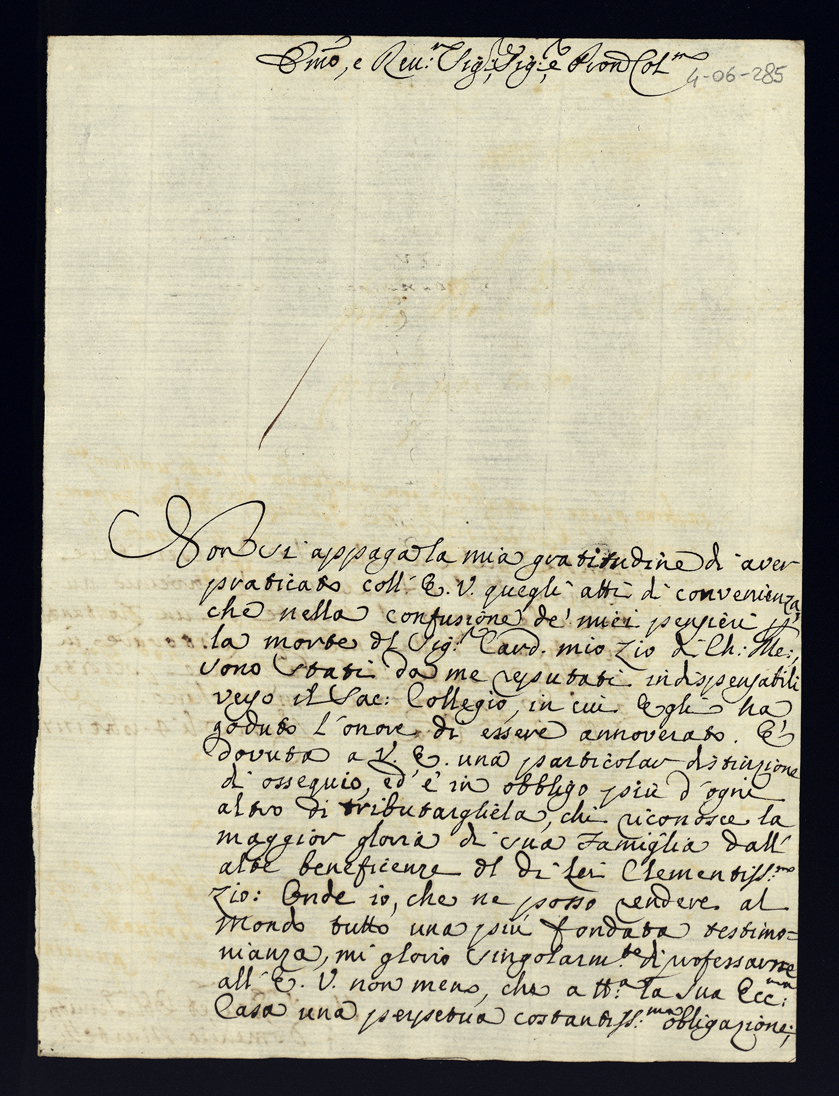 Emo, e Reu:mo Sig:re, Sig:re e Pron Col:mo
4-06-285
Non si appaga la mia gratitudine di aver
praticato coll' E. V. quegli atti di convenienza,
che nella confusione de' miei pensieri p
la morte dl Sig:r Card. mio Zio di Ch: Me:,
sono stati da me reputati indispensabili
verso il Sac: Collegio, in cui Egli ha
goduto l'onore di essere annoverato. E'
dovuta a V. E. una particolar distinzione
di ossequio, ed è in obbligo più d'ogni
altro di tributargliela, chi riconosce la
maggior gloria di sua Famiglia dall'
alte beneficenze dl di Lei Clementiss:mo
Zio: Onde io, che ne posso rendere al
Mondo tutto una più fondata testimo=
nianza, mi glorio singolarm:te di professarne
all' E. V. non meno, che a tt:a la sua Ecc:ma
Casa una perpetua costantiss:ma obligazione;